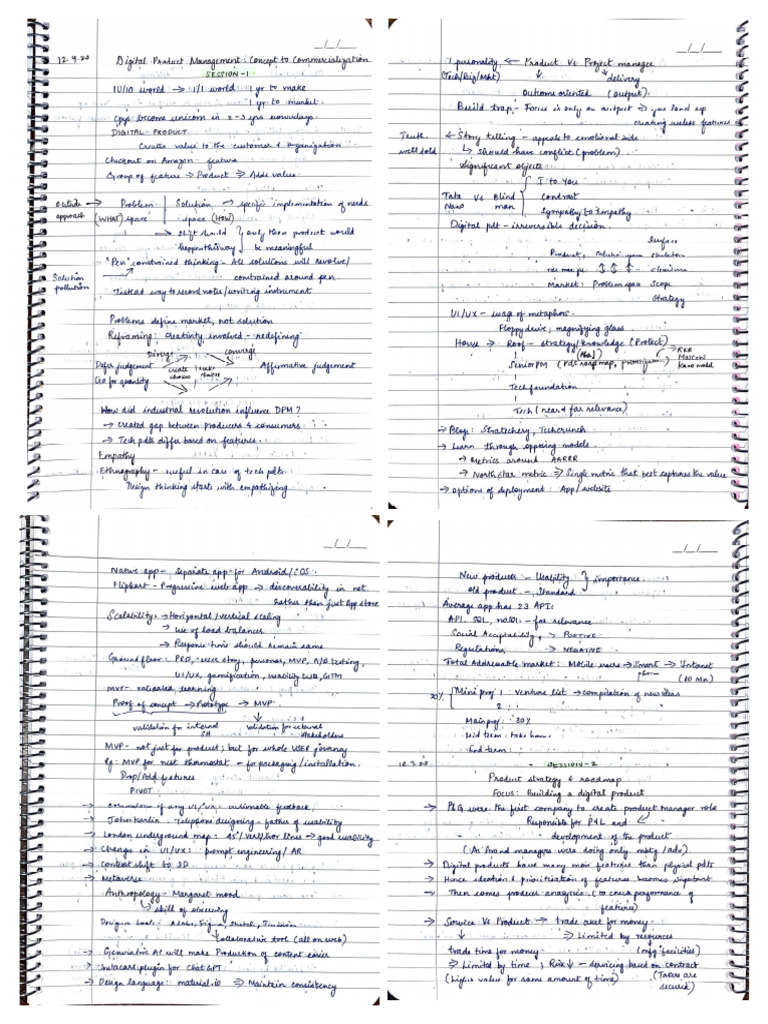 __/__/__
12.9.20 Digital Product Management: Concept to Commercialization
SESSION-1
10/10 world → 1/1 world 1 yr to make
1 yr to market.
cpys become unicorn in 2-3 yrs nowadays
DIGITAL-PRODUCT
Creates value to the customer & organization
Checkout on Amazon - feature
Group of feature → Product ⇒ Adds value
outside approach → Problem (WHAT) space | Solution space (HOW) → specific implementation of needs
→ shift should happen this way } only then product would be meaningful
Solution pollution "Pen" constrained thinking - All solutions will revolve/
constrained around pen.
Instead way to record notes/writing instrument
Problems define market, not solution
Reframing: Creativity, involved - redefining
Diverge converge
Defer judgement create choices make choices Affirmative judgement
Go for quantity
How did industrial revolution influence DPM?
→ created gap between producers & consumers
→ Tech pdts differ based on features.
Empathy
Ethnography - useful in case of tech pdts.
Design thinking starts with empathizing
__/__/__
personality ← Product Vs Project manager
(Tech/Big/Mkt) ↓ ↘ delivery
Outcome oriented (output)
Build trap - Focus is only on output → you land up
creating useless features
Truth well told ← Story telling - appeals to emotional side
↳ should have conflict (problem)
significant objects
Tata Nano Vs Blind man { I to You
Contrast
Sympathy to Empathy
Digital pdt - irreversible decision
Surface
Product, Solution space skeleton
Structure
Market: Problem space Scope
Strategy
UI/UX - usage of metaphors
Floppy device, magnifying glass
House → Roof - strategy/knowledge (Protect)
Senior PM (Pdt roadmap, prioritization) → RICE
MOSCOW
Kano model
Tech foundation
Tech (near & far relevance)
→ Blog: Stratechery, Techcrunch
→ Learn through opposing models
→ Metrics around AARRR
→ North star metric ⇒ Single metric that best captures the value
→ options of deployment: App/website
__/__/__
Native app - separate app for Android/iOS
Flipkart - Progressive web app → discoverability in net
rather than just App store
Scalability: → Horizontal/vertical scaling
→ use of load balancers
→ Response time should remain same
Ground floor: PRD, user story, personas, MVP, A/B testing,
UI/UX, gamification, usability tests, GTM
MVP - validated learning
Proof of concept → Prototype → MVP
validation for internal SH validation for external stakeholders
MVP - not just for product; but for whole USER journey
Eg: MVP for nest thermostat - for packaging/installation.
Drop/Add features
PIVOT
→ of any UI/UX: feedback
→ John Karlin - Telephone designing - father of usability
→ London underground map: 45°/vert/hor lines → good usability
→ Change in UI/UX: prompt engineering/AR
→ content shift to 3D
→ Metaverse
Anthropology - Margaret mead
↳ skill of observing
Design tools: Adobe, Figma, Sketch, InVision
↳ collaborative tool (all on web)
→ Generative AI will make Production of content easier
→ Instacart plugin for ChatGPT.
→ Design language: material.io ⇒ Maintain consistency
__/__/__
New products - Usability } importance
old product - Standard
Average app has 23 APIs
API, SQL, noSQL - far relevance
Social Acceptability → POSITIVE
Regulations → NEGATIVE
Total Addressable market: Mobile users → Smart phone → Internet
(10 Mn)
20% Mini proj 1: Venture list → compilation of new ideas
2
Main proj: 30%
Mid term: take home
End term:
12.9.20 SESSION-2
Product strategy & roadmap
FOCUS: Building a digital product
→ P&G were the first company to create product manager role
Responsible for P&L and
development of the product
(As Brand managers were doing only mktg/adv)
→ Digital products have many more features than physical pdts
→ Hence ideation & prioritization of features becomes
→ Then comes product analytics (to check performance of
features)
→ Service Vs Product → trade asset for money
⇒ Limited by resources
trade time for money (mfg facilities)
⇒ Limited by time; Risk↓ - servicing based on contract
(higher value for same amount of time) (Taxes are
secured)